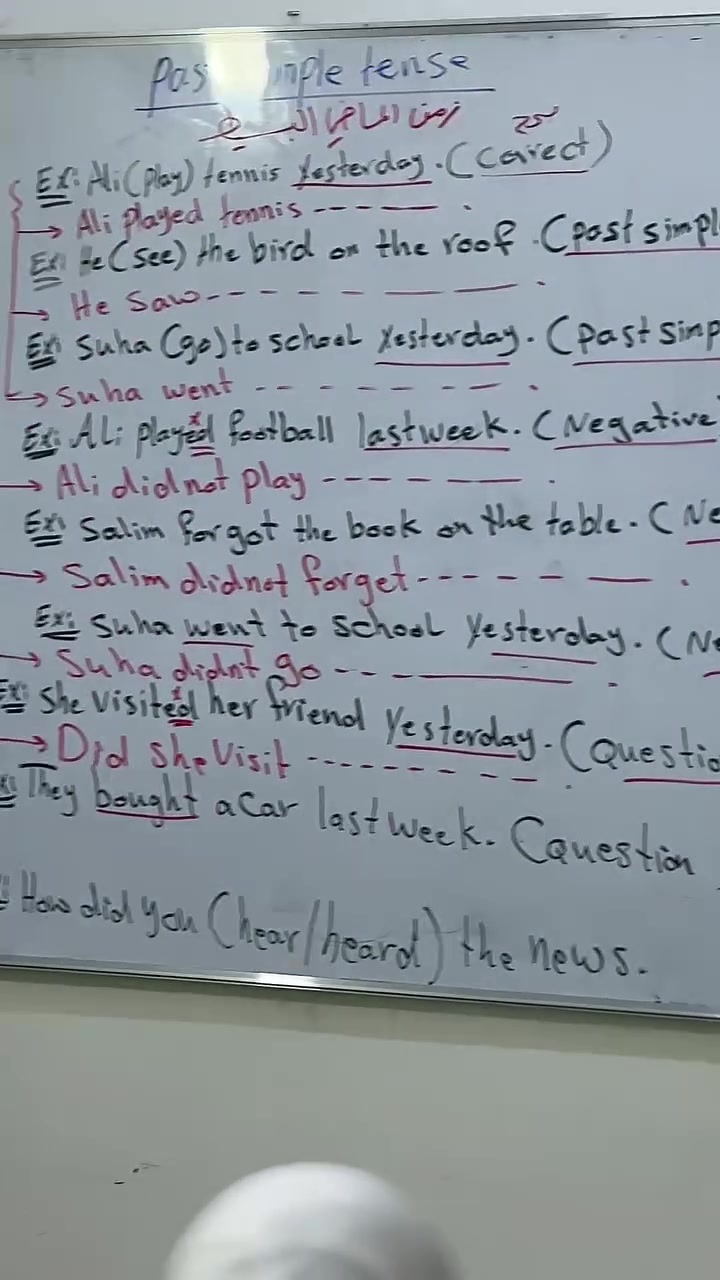 Pas mple tense
زمن الماضي البسيط
Ex: Ali (play) tennis yesterday. (Carect)
→ Ali played tennis ------ .
Ex: He (see) the bird on the roof. (past simpl
→ He saw ------ .
Ex: Suha (go) to school yesterday. (Past simp
→ Suha went ------ .
Ex: Ali played football last week. (Negative
→ Ali didnot play ------ .
Ex: Salim forgot the book on the table. (Ne
→ Salim didnot forget ------ .
Ex: Suha went to school yesterday. (Ne
→ Suha didn't go ------ .
Ex: She visited her friend yesterday. (Questio
→ Did she visit ------ .
They bought a car last week. (question
How did you (hear/heard) the news.